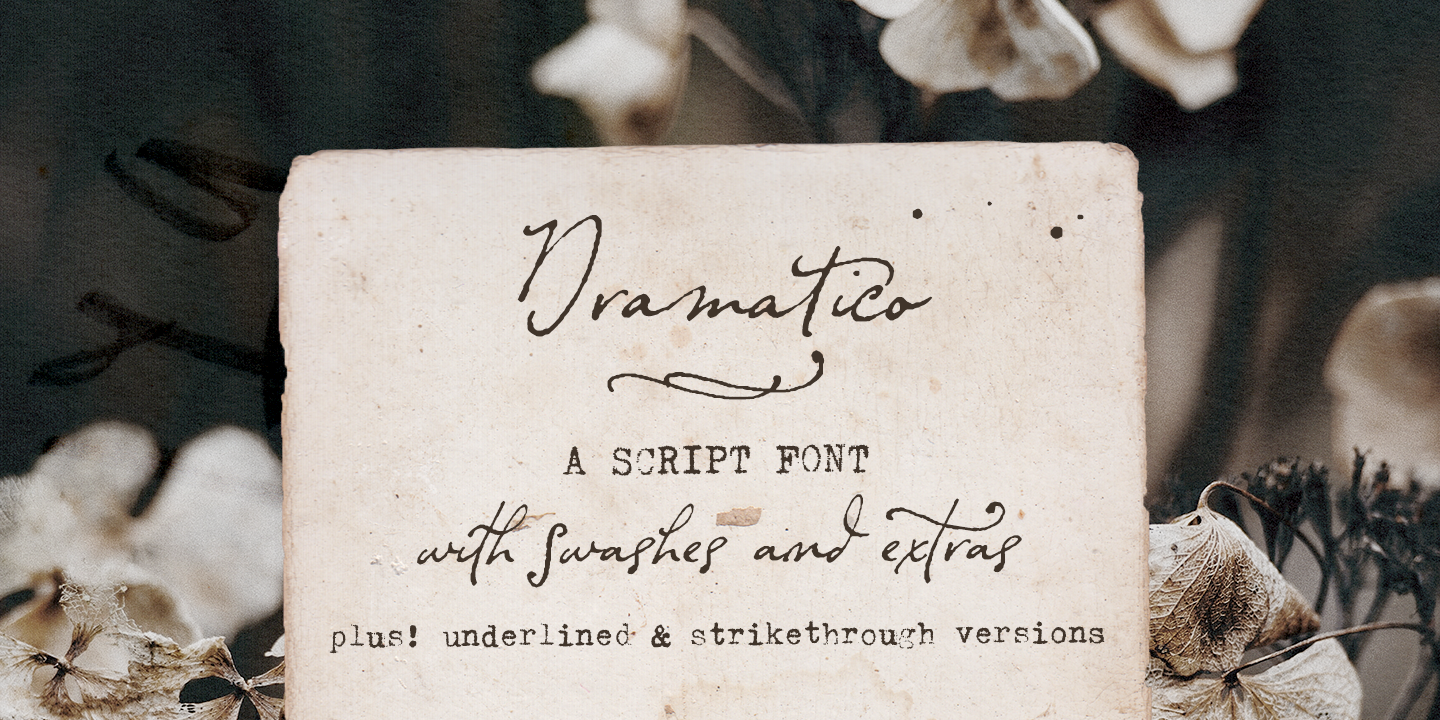 Dramatico
A SCRIPT FONT
with swashes and extras
plus! underlined & strikethrough versions